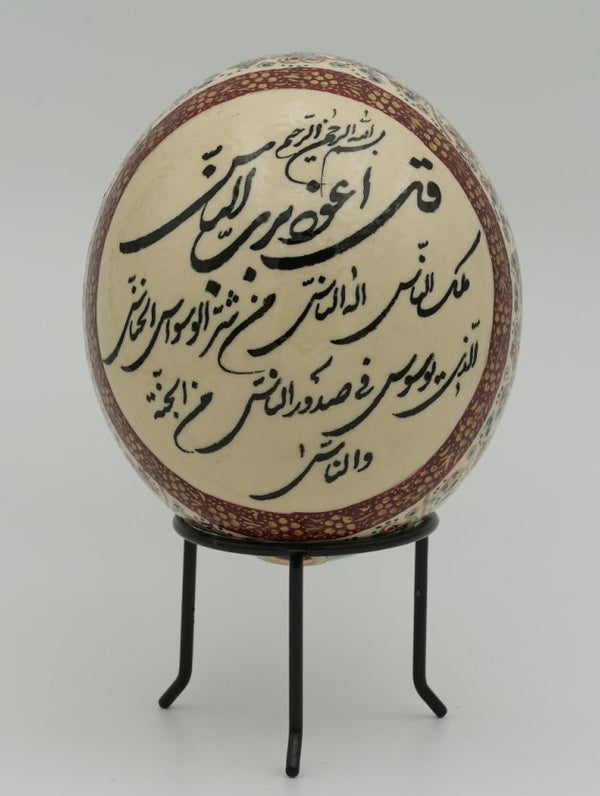 بسم الله الرحمن الرحیم
قل اعوذ برب الناس
ملک الناس اله الناس من شر الوسواس الخناس
الذی یوسوس فی صدور الناس من الجنة
والناس